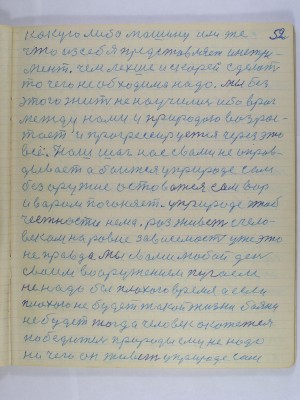 52
какую либо машину или же-
что из себя представляет инстру-
мент. чем легше и скорей сделать
то чего необходимо надо. Мы без
этого жить не научились ибо враг
между нами и природою возрас-
тает и прогрессируется через это
всё. Наш шаг нас с вами не оправ-
дывает а боится у природе сам
без оружие остоватся сам вор
и варом погоняет. у природе этой
честности нема. раз живет с чело-
веком на ровне зависемость уже это
не правда. Мы с вами любой ден
своем вооружением пугаем
не надо бы плохого время а если
плохого не будет такой жизни
не будет тогда человек окажется
победителем природы ему не надо
ни чего он живет у природе сам